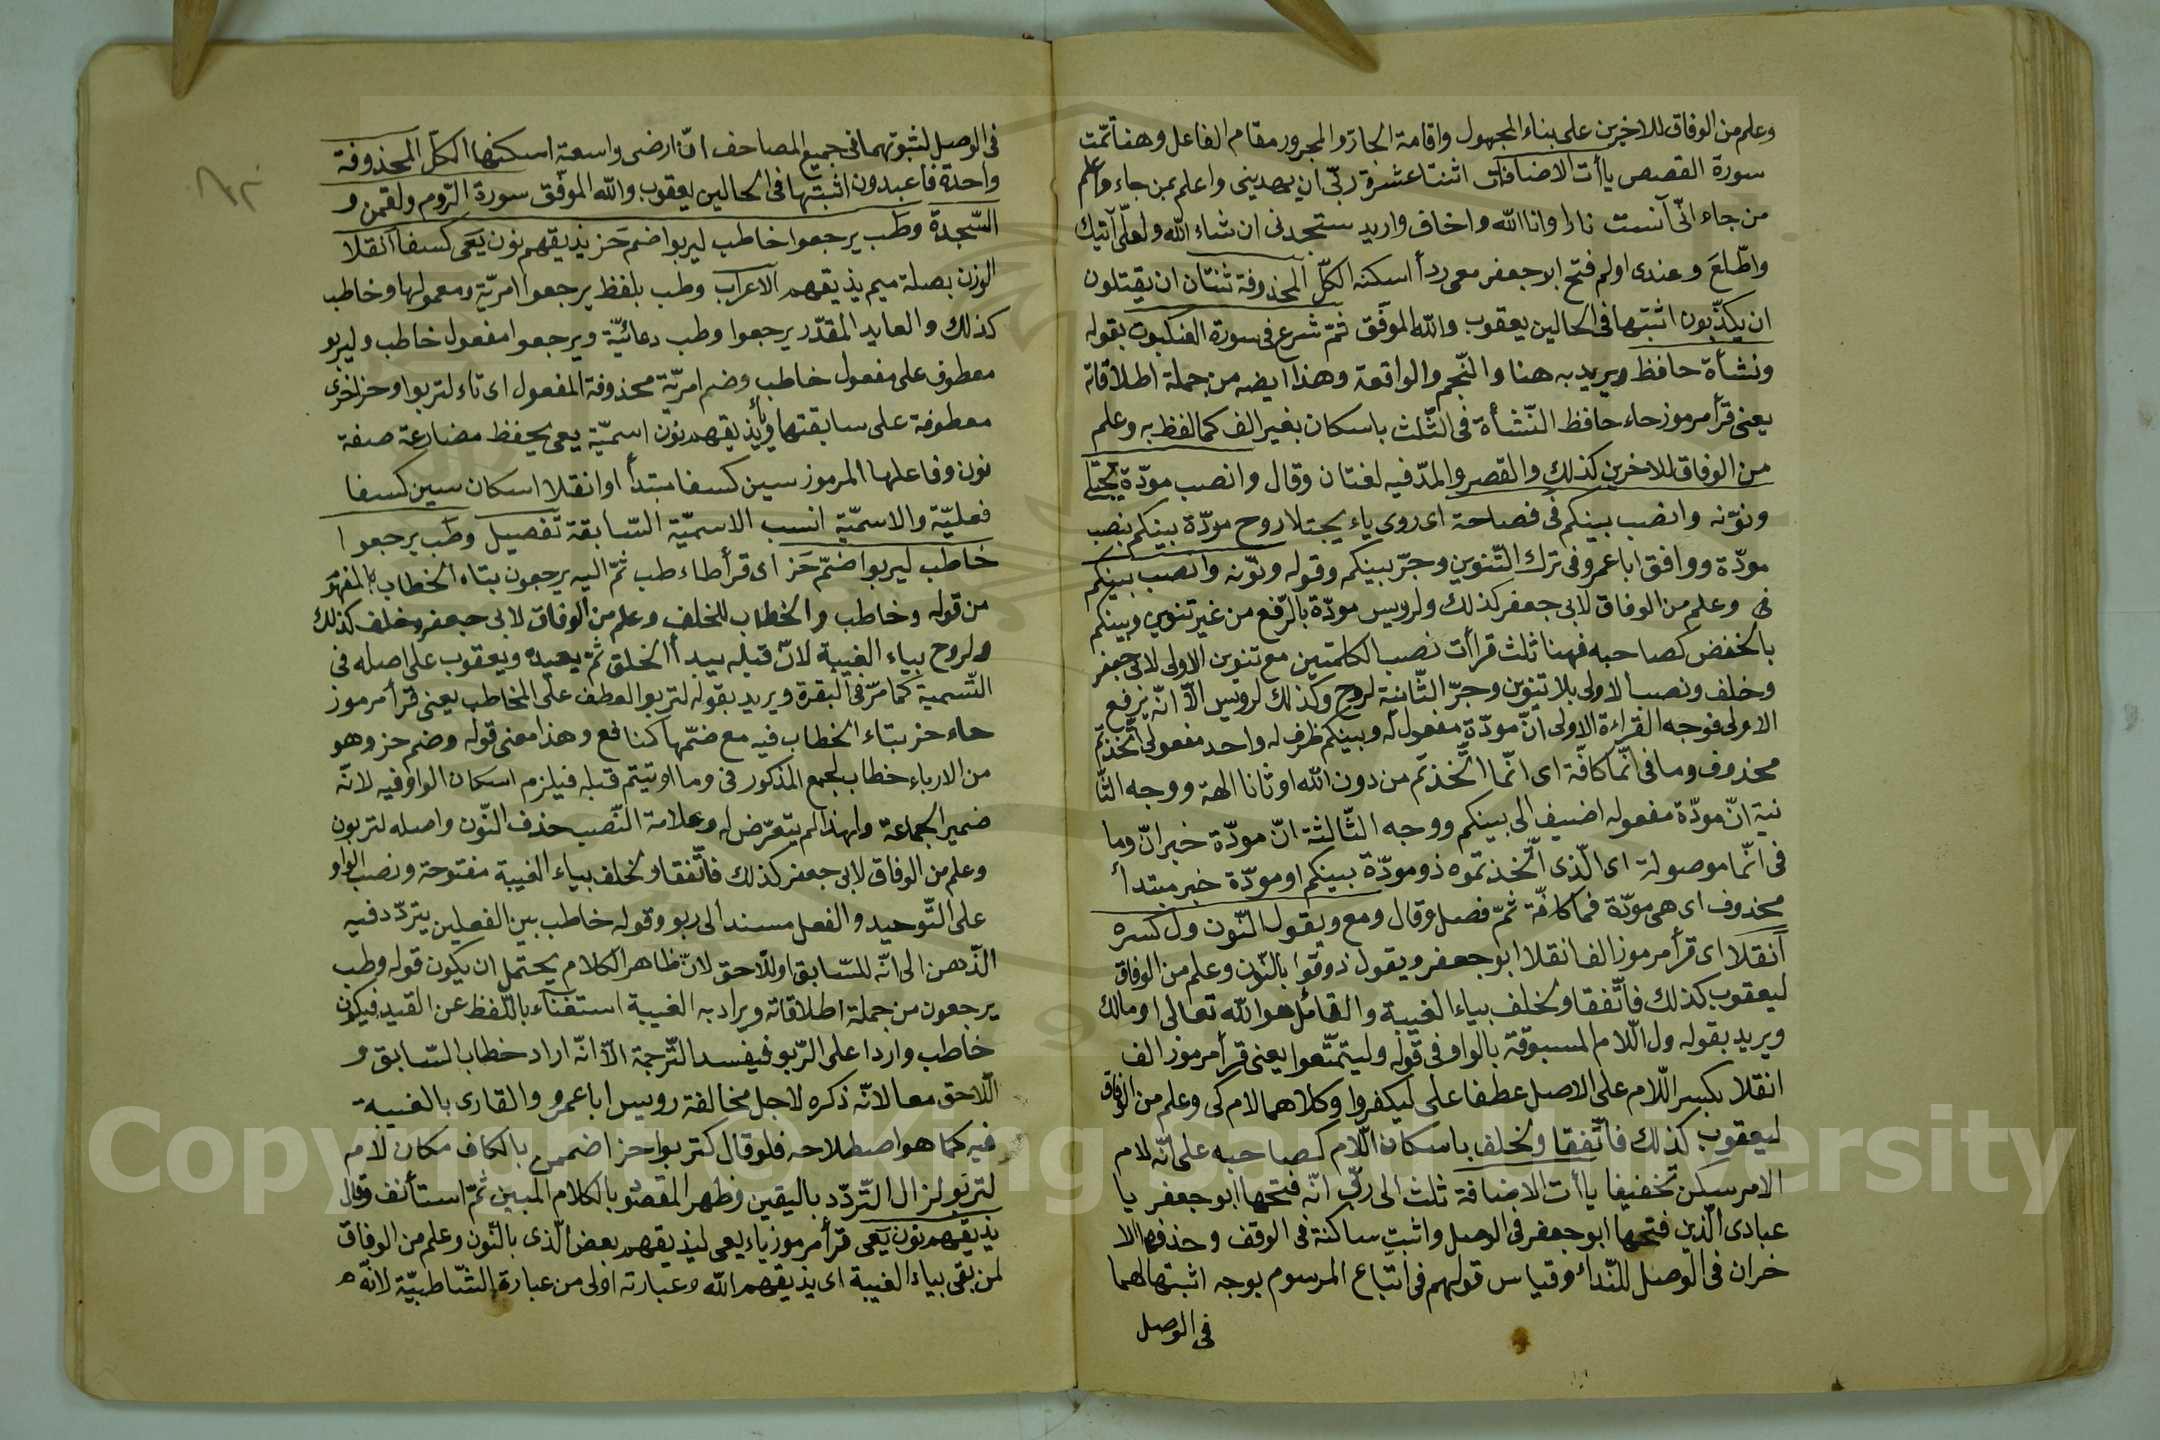 وعلم من الوفاق للاخرين على بناء المجهول واقامة الجار والمجرور مقام الفاعل وهنا تمّت
سورة القصص ياأت الاضافات اثنتا عشرة ربّى ان يهدينى واعلم بمن جاء واعلم
من جاء انّى آنست نارا وانا الله واخاف واريد ستجدنى ان شاء الله ولعلّى آتيك
واطّلع وعندى اولم فتح ابو جعفر معى ردأ اسكنه الكلّ المحذوفة ثنتان ان يقتلون
ان يكذّبون اثبتها فى الحالين يعقوب والله الموفّق ثمّ شرع فى سورة العنكبوت بقوله
ونشأة حافظ ويريد به هنا والنّجم والواقعة وهذا ايضه من جملة اطلاقاته
يعنى قرأ مرموز حاء حافظ النّشأة فى الثّلث باسكان بغير الف كما لفظ به وعلم
من الوفاق للاخرين كذلك والقصر والمدّ فيه لغتان وقال وانصب مودّة يجتلى
ونوّنه وانصب بينكم فى فصاحة اى روى ياء يجتلا روح مودّة بينكم بنصب
مودّة ووافق اباعمرو فى ترك التّنوين وجرّ بينكم وقوله ونوّنه وانصب بينكم
فى وعلم من الوفاق لابى جعفر كذلك ولرويس مودّة بالرّفع من غير تنوين وبينكم
بالخفض كصاحبه فهنا ثلث قرأات نصب الكلمتين مع تنوين الاولى لابى جعفر
وخلف ونصب الاولى بلا تنوين وجرّ الثّانية لروح وكذلك لرويس الاّ انّه يرفع
الاولى فوجه القراءة الاولى انّ مودّة مفعول له وبينكم ظرف له واحد مفعولى اتّخذتم
محذوف وما فى انّما كافّة اى انّما اتّخذتم من دون الله اوثانا الهة ووجه الثّا
نية انّ مودّة مفعوله اضيف الى بينكم ووجه الثّالثة انّ مودّة خبر انّ وما
فى انّما موصولة اى الّذى اتّخذتموه ذو مودّة بينكم او مودّة خبر مبتدأ
محذوف اى هى مودّة فما كافّة ثمّ فصل وقال ومع ويقول النّون ول كسره
انقلا اى قرأ مرموز الف انقلا ابو جعفر ويقول ذوقوا بالنّون وعلم من الوفاق
ليعقوب كذلك فاتّفقا ولخلف بياء الغيبة والقائل هو الله تعالى او مالك
ويريد بقوله ول اللّام المسبوقة بالواو فى قوله وليتمتّعوا يعنى قرأ مرموز الف
انقلا بكسر اللّام على الاصل عطفا على ليكفروا وكلاهما لام كى وعلم من الوفاق
ليعقوب كذلك فاتّفقا ولخلف باسكان اللّام كصاحبه على انّه لام
الامر سكن تخفيفا ياأت الاضافة ثلث الى ربّى انّه فتحها ابو جعفر يا
عبادى الّذين فتحها ابو جعفر فى الوصل واثبت ساكنة فى الوقف وحذفها الا
خران فى الوصل للنّداء وقياس قولهم فى اتّباع المرسوم بوجه اثبتها لهما
فى الوصل
فى الوصل لثبوتهما فى جميع المصاحف انّ ارضى واسعة اسكنها الكلّ المحذوفة
واحدة فاعبدون اثبتها فى الحالين يعقوب والله الموفّق سورة الرّوم ولقمن و
السّجدة وطب يرجعوا خاطب ليربوا ضم حز يذيقهم نون يعى كسفا انقلا
الوزن بصلة ميم يذيقهم الاعراب وطب بلفظ يرجعوا امريّة ومعمولها وخاطب
كذلك والعايد المقدّر يرجعوا وطب دعائيّة ويرجعوا مفعول خاطب وليربو
معطوف على مفعول خاطب وضم امريّة محذوفة المفعول اى تاء لتربوا وحز اخرى
معطوفة على سابقتها ويذيقهم نون اسميّة يعى يحفظ مضارعة صفة
نون وفاعلها المرموز سين كسفا مبتدأ او انقلا اسكان سين كسفا
فعليّة والاسميّة انسب الاسميّة السّابقة تفصيل وطب يرجعوا
خاطب ليربوا ضمّ حز اى قرأ طاء طب ثمّ اليه يرجعون بتاء الخطاب
من قوله وخاطب والخطاب للخلف وعلم من الوفاق لابى جعفر وخلف كذلك
ولروح بياء الغيبة لانّ قبله يبدأ الخلق ثمّ يعيده ويعقوب على اصله فى
التّسمية كما مرّ فى البقرة ويريد بقوله لتربوا العطف على المخاطب يعنى قرأ مرموز
حاء حز بتاء الخطاب فيه مع ضمّها كنافع وهذا معنى قوله وضم حز وهو
من الارباء خطاب لجمع المذكور فى وما اوتيتم قبله فيلزم اسكان الواو فيه لانّه
ضمير الجماعة ولهذا لم يتعرّض له وعلامة النّصب حذف النّون واصله لتربون
وعلم من الوفاق لابى جعفر كذلك فاتّفقا ولخلف بياء الغيبة مفتوحة ونصب الواو
على التّوحيد والفعل مسند الى ربو وقوله خاطب بين الفعلين يتردّد فيه
الذّهن الى انّه للسّابق او للّاحق لانّ ظاهر الكلام يحتمل ان يكون قوله وطب
يرجعون من جملة اطلاقاته ويراد به الغيبة استغناء باللّفظ عن القيد فيكون
خاطب واردا على الرّبو فيفسد التّرجمة الاّ انّه اراد خطاب السّابق و
اللّاحق معا لانّه ذكره لاجل مخالفة رويس اباعمرو والقارى بالغيبة
فيه كما هو اصطلاحه فلو قال كتربوا حز اضممن بالكاف مكان لام
لتربو لزال التّردّد باليقين وظهر المقصود بالكلام المبين ثمّ استأنف وقال
يذيقهم نون يعى قرأ مرموز ياء يعى ليذيقهم بعض الّذى بالنّون وعلم من الوفاق
لمن بقى بياء الغيبة اى يذيقهم الله وعبارته اولى من عبارة الشّاطبيّة لانّه
Copyright © King Saud University